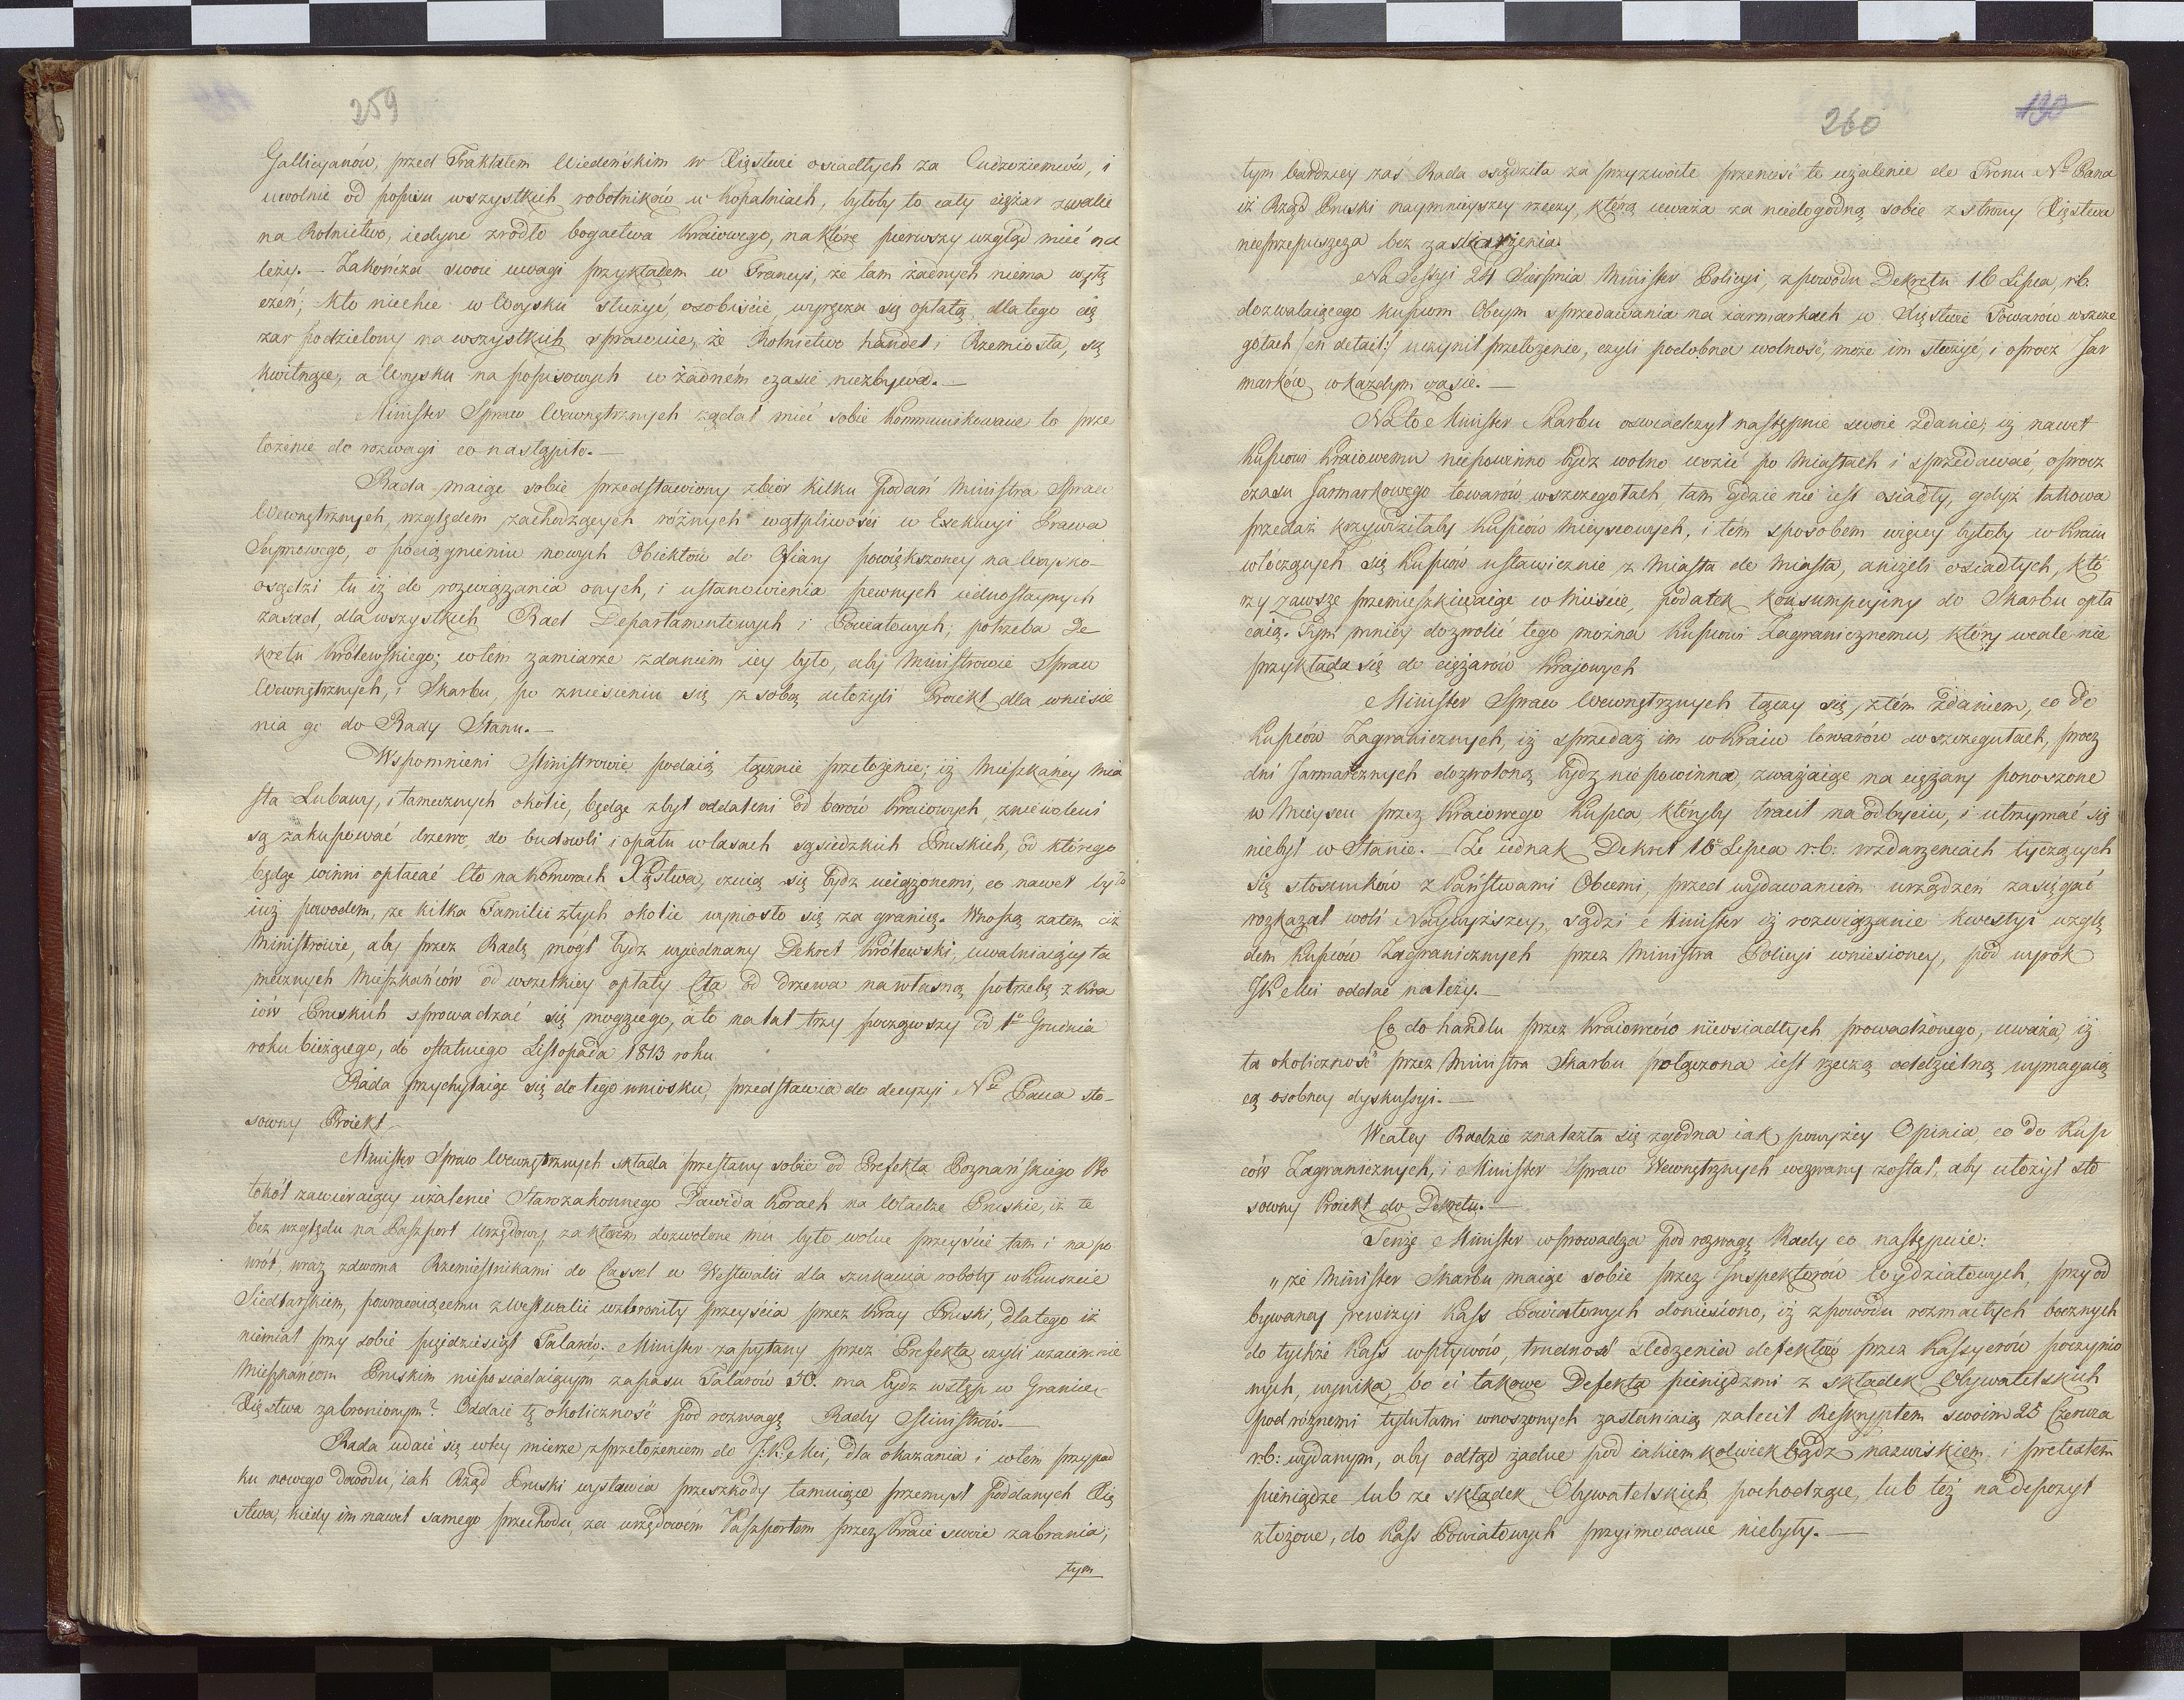 259
Gallicyanów, przed Traktatem Wiedeńskim w Xięstwie osiadłych za Cudzoziemców, i
uwolnić od popisu wszystkich robotników w kopalniach, byłoby to cały ciężar zwalić
na Rolnictwo, iedyne zrodło bogactwa Kraiowego, na które pierwszy wzgląd mieć na
leży. — Zakończa swoie uwagi przykładem w Francyi, że tam żadnych niema wyłą
czeń; kto niechce w Woysku służyć osobiście, wyręcza się opłatą, dla tego cię
żar podzielony na wszystkich sprawuie, że Rolnictwo handel i Rzemiosła, są
kwitnące, a Woysku na popisowych w żadném czasie niezbywa. —
Minister Spraw Wewnętrznych żądał mieć sobie kommunikowane to prze
łożenie do rozwagi co nastąpiło. —
Rada maiąc sobie przedstawiony zbiór kilku Podań Ministra Spraw
Wewnętrznych, względem zachodzących różnych wątpliwości w Exekucyi Prawa
Seymowego, o pociągnieniu nowych Obiektów do Ofiary powiększoney na Woysko
osądziła iż do rozwiązania onych, i ustanowienia pewnych iednostaynych
zasad, dla wszystkich Rad Departamentowych i Powiatowych; potrzeba De
kretu Królewskiego; w tem zamiarze zdaniem iey było, aby Ministrowie Spraw
Wewnętrznych, i Skarbu, po zniesieniu się z sobą ułożyli Proiekt dla wniesie
nia go do Rady Stanu. —
Wspomnieni Ministrowie podaią łącznie przełożenie; iż Mieszkańcy Mia
sta Lubawy, i tamecznych okolic, będąc zbyt oddaleni od borów Kraiowych, zniewoleni
są zakupować drzewo, do budowli i opału w lasach sąsiedzkich Pruskich, od którego
będąc winni opłacać Cło na Komorach Xięstwa, czuią się bydz uciążonemi, co nawet było
iuż powodem, że kilka Familii z tych okolic wyniosło się za granicę. Wnoszą zatem ciż
Ministrowie, aby przez Radę mógł bydz wyiednany Dekret Królewski, uwalniaiący ta
mecznych Mieszkańców od wszelkiey opłaty Cła od drzewa na własną potrzebę z Kra
iów Pruskich sprowadzać się mogącego, a to na lat trzy począwszy od 1º Grudnia
roku bieżącego, do ostatniego Listopada 1813 roku.
Rada przychylaiąc się do tego wniosku, przedstawia do decyzyi Nº Pana sto-
sowny Proiekt.
Minister Spraw Wewnętrznych składa przesłany sobie od Prefekta Poznańskiego Pro
tokół zawieraiący użalenie Starozakonnego Dawida Korach na Władze Pruskie, iż te
bez względu na Paszport Urzędowy, za którem dozwolone mu było wolne przeyście tam i na po
wrót, wraz z dwoma Rzemieślnikami do Cassel w Westwalii dla szukania roboty w Kunszcie
Siedlarskiem, powracaiącemu z Westwalii wzbroniły przeyścia przez Kray Pruski, dla tego iż
niemiał przy sobie pięćdziesiąt Talarów. Minister zapytany przez Prefekta czyli wzaiemnie
Mieszkańcom Pruskim nieposiadaiącym zapasu Talarów 50. ma bydz wstęp w Granice
Xięstwa zabronionym? Oddaie tę okoliczność pod rozwagę Rady Ministrów. —
Rada udaie się w tey mierze, z przełożeniem do J: K: Mci, dla okazania i w tém przypad
ku nowego dowodu, iak Rząd Pruski wystawia przeszkody tamuiące przemysł Poddanych Xię
stwa, kiedy im nawet samego przechodu, za urzędowém Paszportem przez Kraie swoie zabrania;
tym
260
190
tym bardziey zaś Rada osądziła za przyzwoite przenieść te użalenie do Tronu Nº Pana
iż Rząd Pruski naymnieyszey rzeczy, którą uważa za niedogodną sobie z strony Xięstwa
nieprzepuszcza bez zaskarżenia.
Na Sessyi 24 Sierpnia Minister Policyi, z powodu Dekretu 16 Lipca rb.
dozwalaiącego kupcom Obcym sprzedawania na iarmarkach w Xięstwie Towarów w szcze
gółach /:en detail:/ uczynił przełożenie, czyli podobna wolność, może im służyć, i oprocz Jar
marków, w każdym czasie. —
Na to Minister Skarbu oswiadczył następnie swoie zdanie, iż nawet
Kupcowi Kraiowemu niepowinno bydz wolno wozić po Miastach i sprzedawać, oprocz
czasu Jarmarkowego towarów w szczegółach, tam gdzie nie iest osiadły, gdyż takowa
przedaż krzywdziłaby Kupców mieyscowych, i tem sposobem więcey byłoby w Kraiu
włóczących się Kupców ustawicznie z Miasta do Miasta, aniżeli osiadłych, któ
rzy zawsze przemieszkiwaiąc w Mieście, podatek konsumpcyiny do Skarbu opła
caią. Tym mniey dozwolić tego można Kupcowi Zagranicznemu, który wcale nie
przykłada się do ciężarów Krajowych
Minister Spraw Wewnętrznych łączy się z tém zdaniem, co do
Kupców Zagranicznych, iż sprzedaż im w Kraiu towarów w szczegułach, procz
dni Jarmarcznych dozwoloną bydz nie powinna, zważaiąc na ciężary ponoszone
w Mieyscu przez Kraiowego Kupca, któryby tracił na odbyciu, i utrzymać się
niebył w Stanie. — Że iednak Dekret 16º Lipca r:b: w zdarzeniach tyczących
się stosunków z Państwami Obcemi, przed wydawaniem urządzeń zasięgać
rozkazał woli Naywyższey, sądzi Minister iż rozwiązanie kwestyi wzglę
dem Kupców Zagranicznych przez Ministra Policyi wniesioney, pod wyrok
JK Mci oddać należy. —
Co do handlu przez Kraiowców nieosiadłych prowadzonego, uważa, iż
ta okoliczność przez Ministra Skarbu połączona iest rzeczą oddzielną wymagaią
cą osobney dyskussyi. —
W całey Radzie znalazła się zgodna iak powyżey Opinia, co do Kup
ców Zagranicznych, i Minister Spraw Wewnętrznych wezwany został, aby ułożył sto
sowny Proiekt do Dekretu. —
Tenże Minister wprowadza pod rozwagę Rady co następuie:
„że Minister Skarbu maiąc sobie przez Inspektorów Wydziałowych, przy od
bywaney rewizyi Kass Powiatowych doniesiono, iż z powodu rozmaitych bocznych
do tychże Kass wpływów, trudność śledzenia defektów przez Kassyerów poczynio
nych, wynika, bo ci takowe Defekta pieniędzmi z składek Obywatelskich
pod różnemi tytułami wnoszonych zasłaniaią zalecił Reskryptem swoim 25 Czerwca
rb: wydanym, aby odtąd żadne pod iakiemkolwiek bądz nazwiskiem, i pretextem
pieniądze lub ze składek Obywatelskich pochodzące, lub też na depozyt
złożone, do Kass Powiatowych przyimowane niebyły. —